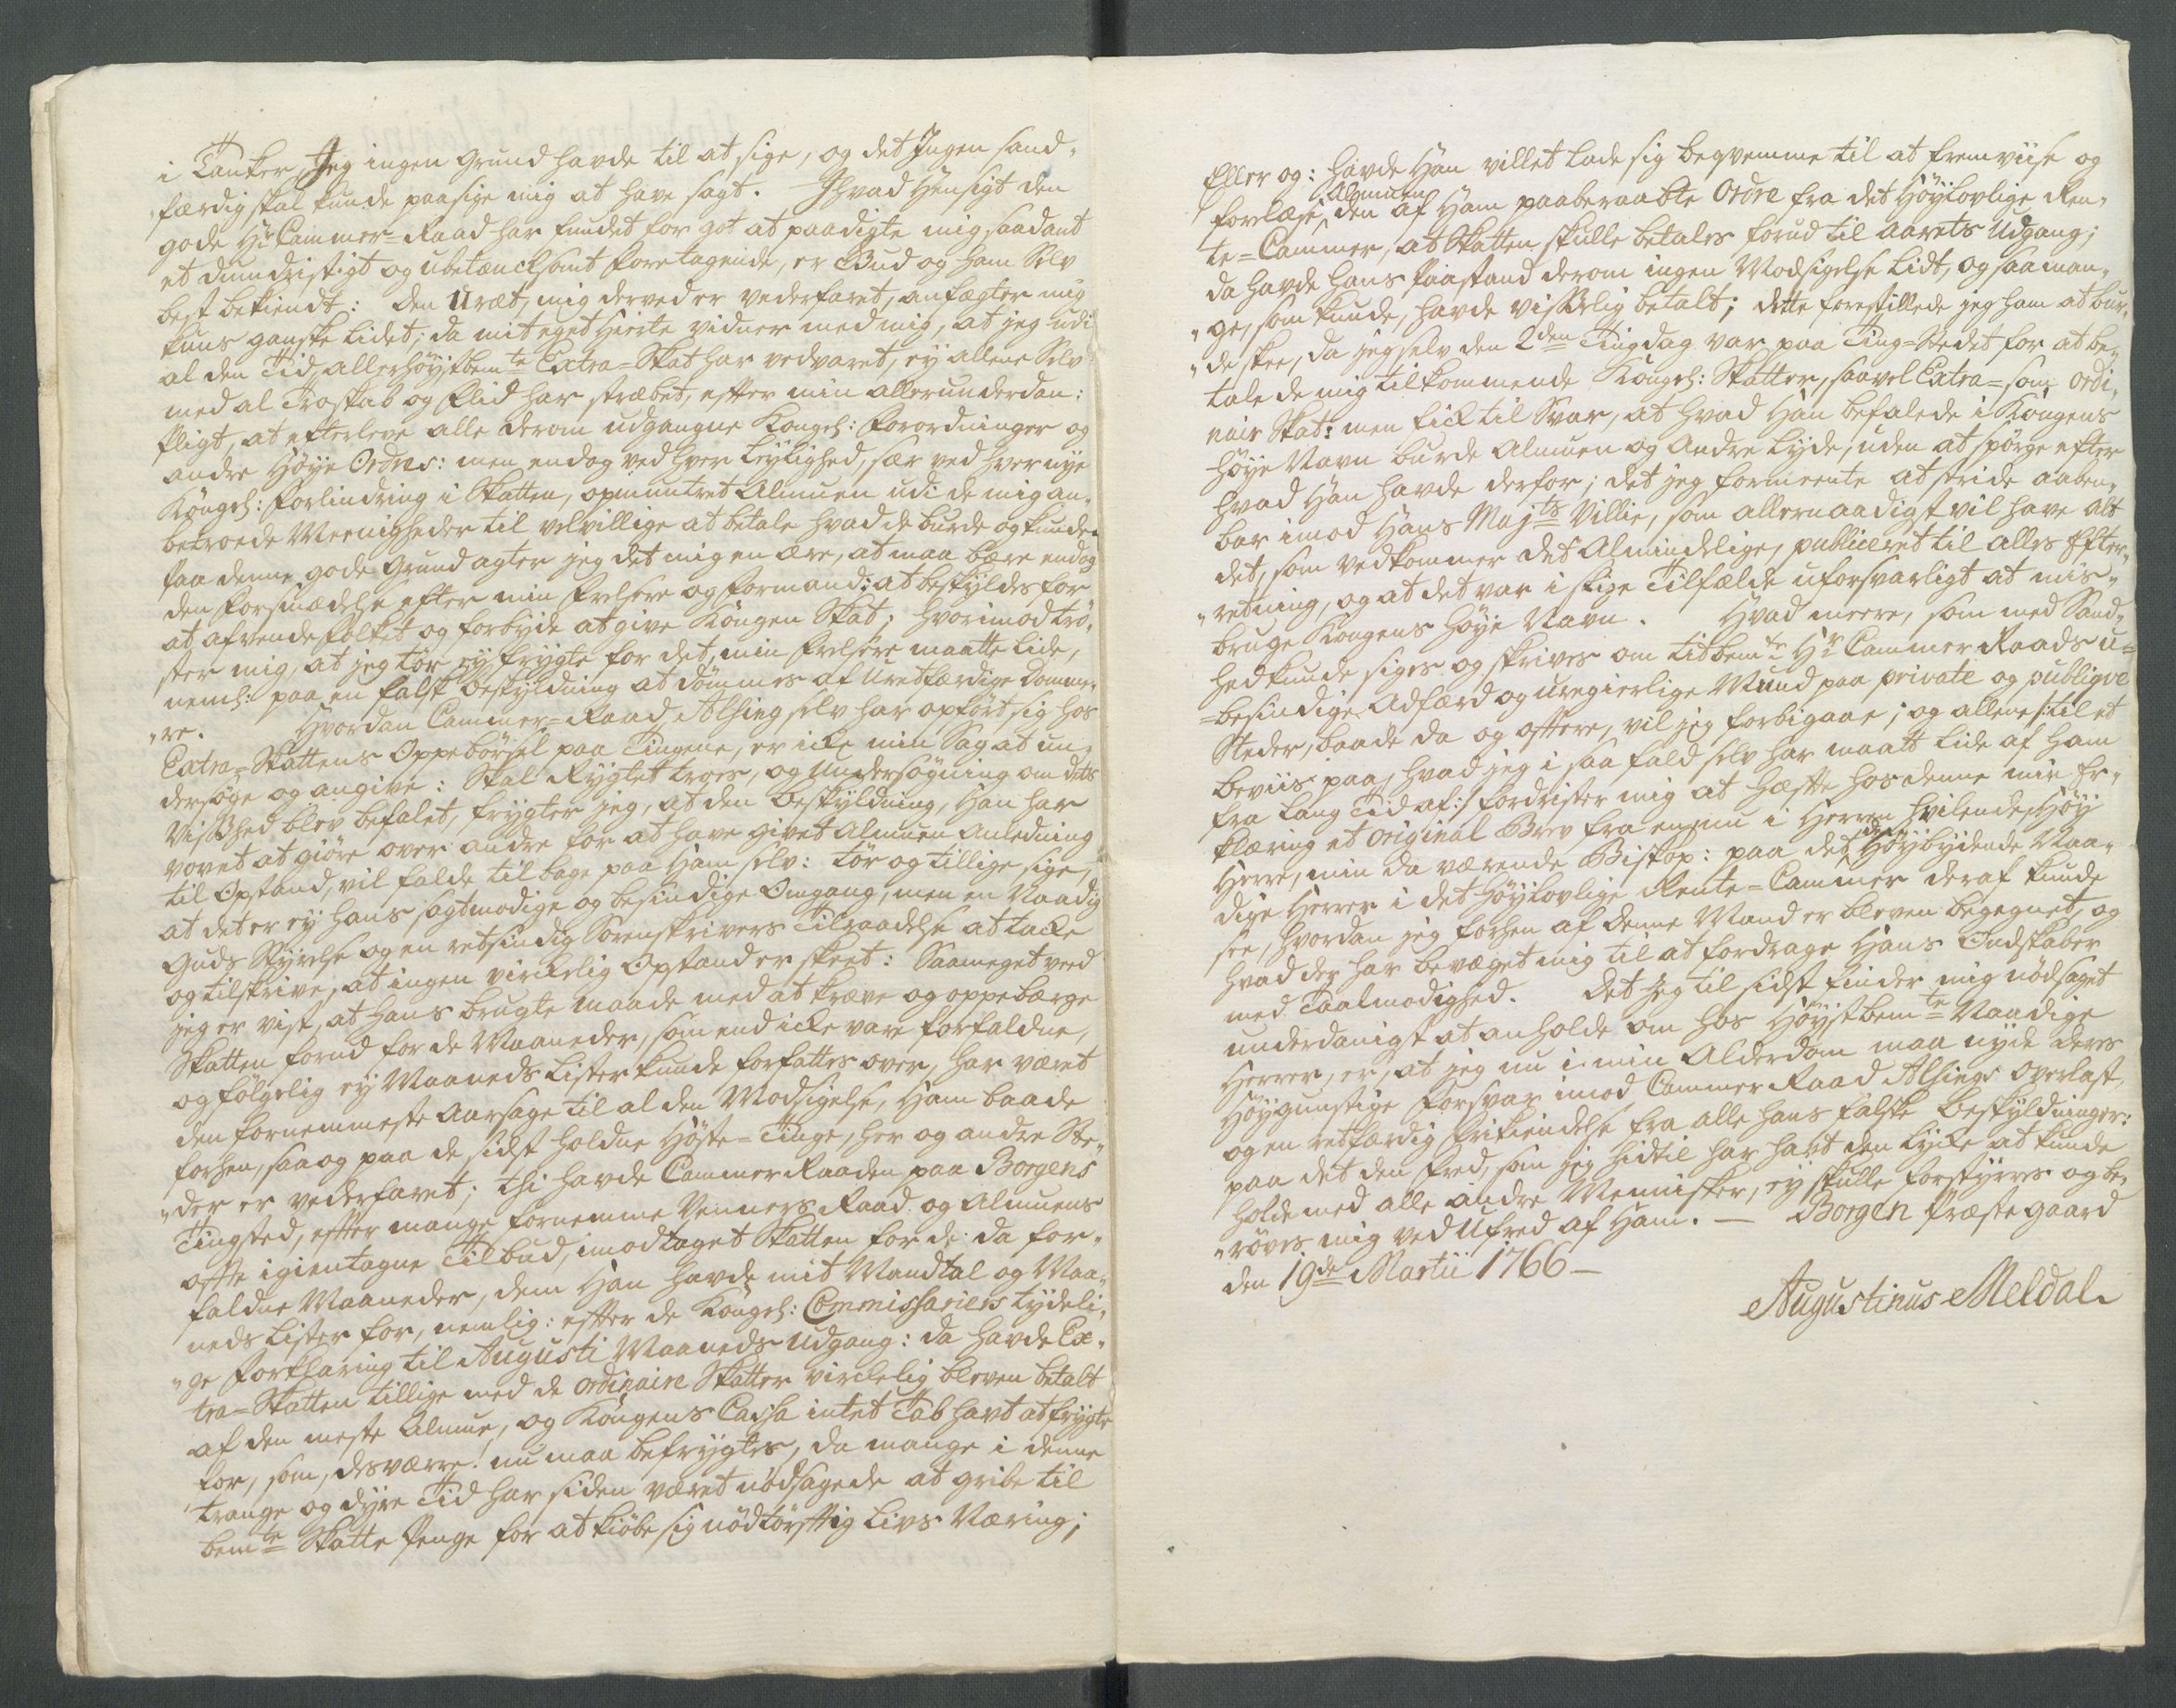 i Tanker, Jeg ingen Grund havde til at sige, og det Ingen sand-
"færdig skal kunde paasige mig at have sagt. I hvad Hensigt den
gode Hr Cammer=Raad har fundet for got at paadigte mig saadant
et dumdristigt og ubetæncksomt Foretagende, er Gud og ham Selv
best bekiendt: den Uræt, mig derved er vederfaret, anfægter mig
kuns ganske lidet; da mit eget Hierte vidner med mig, at jeg udi
al den Tid, allerhöystbemte Extra=Skat har vedvaret, ey allene Selv
med al Troskab og Flid har stræbet, efter min allerunderdan:
Pligt, at efterleve alle derom udgangne Kongel: Forordninger og
andre Höye Ordres: men endog ved hver Leylighed, sær ved hver nye
Kongel: Forlindring i Skatten, opmuntret Almuen udi de mig an-
betroede Meenigheder til velvillige at betale hvad de burde og kunde.
Paa denne gode Grund agter jeg det mig en ære, at maa bære endog
den Forsmædelse efter min Frelsere og Formand: at beskyldes for
at afvende Folket og forbyde at give Kongen Skat; hvorimod trö-
ster mig, at jeg tör ey frygte for det, min Frelsere maatte lide,
neml: paa en falsk Beskyldning at dömmes af Uretfærdige Domme-
"re. Hvordan Cammer=Raad Alsing selv har opfört sig hos
Extra=Skattens Oppebörsel paa Tingene, er icke min Sag at un-
dersöge og angive: Skal Rygtet troes, og Undersögning om dets
Vished blev befalet, frygter jeg, at den Beskyldning, Han har
vovet at giöre over andre for at have givet Almuen Anledning
til Opstand, vil falde tilbage paa Ham selv: tör og tillige sige,
at det er ey hans sagtmodige og besindige Omgang, men en Naadig
Guds Styrelse og en retsindig Sorenskrivers Tilraadelse at tacke
og tilskrive, at ingen virckelig Opstand er skeet: Saameget veed
jeg er vist, at hans brugte maade med at kræve og oppebærge
Skatten forud for de Maaneder, som end icke vare forfaldne,
og fölgelig ey Maaneds Lister kunde forfattes over, har været
den fornemmeste Aarsage til al den Modsigelse, Ham baade
forhen, saa og paa de sidst holdne Höste=Tinge, her og andre Ste-
"der er vederfaret; thi havde Cammer Raaden paa Borgens
Tingsted, efter mange fornemme Venners Raad og Almuens
ofte igientagne Tilbud, imodtaget Skatten for de da for-
faldne Maaneder, dem Han havde mit Mandtal og Maa-
neds Lister for, nemlig: efter de Kongel: Commissariers tydeli-
"ge Forklaring til Augusti Maaneds Udgang: da havde Ex-
tra=Skatten tillige med de ordinaire Skatter virckelig bleven betalt
af den meste Almue, og Kongens Cassa intet Tab havt at frygte
for, som, desværre! nu maa befrygtes, da mange i denne
trange og dyre Tid har siden været nödsagede at gribe til
bemte Skatte Penge for at kiöbe sig nödtörftig Livs Næring;
Eller og: havde Han villet lade sig beqvemme til at fremviise og
forlæse Almuen den af Ham paaberaabte Ordre fra det Höylovlige Ren-
te=Cammer, at Skatten skulle betales forud til Aarets Udgang;
da havde hans Paastand derom ingen Modsigelse lidt, og saa man-
"ge, som kunde, havde visselig betalt; dette forestillede jeg ham at bur-
"de skee, da jeg selv den 2den Tingdag var paa Ting=Stedet for at be-
tale de mig tilkommende Kongel: Skatter, saavel Extra= som ordi-
nair Skat: men fick til Svar, at hvad Han befalede i Kongens
höye Navn burde Almuen og Andre lyde, uden at spörge efter
hvad Han havde derfor; det jeg formeente at stride aaben-
bar imod Hans Majts Villie, som allernaadigst vil have alt
det, som vedkommer det Almindelige, publiceret til alles Efter-
"retning, og at det var i slige Tilfælde uforsvarligt at mis-
bruge Kongens höye Navn. Hvad meere, som med Sand-
hed kunde siges og skrives om titbemte Hr Cammer Raads u=
=besindige Adfærd og uregierlige Mund paa private og publiqve
Steder, baade da og oftere, vil jeg forbigaae; og allene /:til et
Beviis paa, hvad jeg i saa fald selv har maatt lide af Ham
fra lang Tid af:/ fordrister mig at hæfte hos denne min Er-
klæring et original Brev fra en nu i Herren hvilende Höy
Herre, min da værende Biskop: paa det de Höybydende Naa-
dige Herrer i det Höylovlige Rente=Cammer deraf kunde
see, hvordan jeg forhen af denne Mand er bleven begegnet, og
hvad der har bevæget mig til at fordrage Hans Ondskaber
med Taalmodighed. Det Jeg til sidst finder mig nödsaget
underdanigst at anholde om hos Höystbemte Naadige
Herrer, er, at jeg nu i min Alderdom maa nyde Deres
Höygunstige Forsvar imod Cammer Raad Alsings Overlast,
og en retfærdig Frikiendelse fra alle hans falske Beskyldninger:
paa det den Fred, som jeg hidtil har havt den Lycke at kunde
holde med alle andre Mennisker, ey skulle forstyrres og be-
"röves mig ved Ufred af Ham. — Borgen Præste gaard
den 19de Martii 1766 —
Augustinus Meldal.